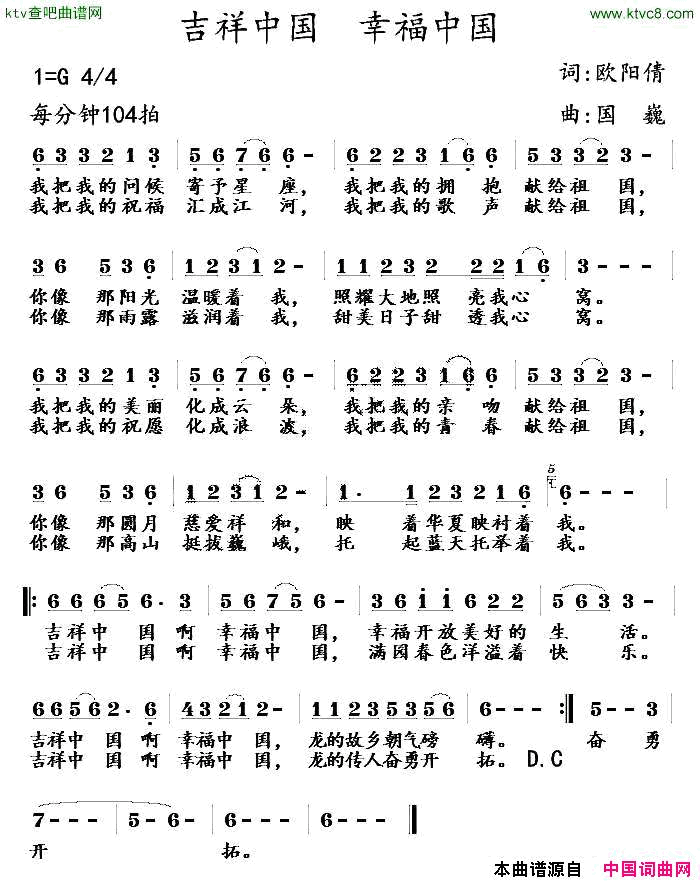 ktv查吧曲谱网
www.ktvc8.com
吉祥中国 幸福中国
1=G 4/4
词:欧阳倩
每分钟104拍
曲:国 巍
6 3 3 2 1 3 | 5 6 7 6 6 - | 6 2 2 3 1 6 6 - | 5 3 3 2 3 - |
我把我的问候 寄予星 座, 我把我的拥 抱 献给祖 国,
我把我的祝福 汇成江 河, 我把我的歌 声 献给祖 国,
3 6 5 3 6 | 1 2 3 1 2 - | 1 1 2 3 2 2 2 1 6 | 3 - - - |
你像 那阳光 温暖着 我, 照耀大地照 亮我心 窝。
你像 那雨露 滋润着 我, 甜美日子甜 透我心 窝。
6 3 3 2 1 3 | 5 6 7 6 6 - | 6 2 2 3 1 6 6 - | 5 3 3 2 3 - |
我把我的美丽 化成云 朵, 我把我的亲 吻 献给祖 国,
我把我的祝愿 化成浪 波, 我把我的青 春 献给祖 国,
3 6 5 3 6 | 1 2 3 1 2 - | 1 · 1 2 3 2 1 6 | 5 6 - - - |
你像 那圆月 慈爱祥 和, 映 着华夏映衬着 我。
你像 那高山 挺拔巍 峨, 托 起蓝天托举着 我。
|: 6 6 6 5 6 · 3 | 5 6 7 5 6 - | 3 6 1 1 6 2 2 | 5 6 3 3 - |
吉祥中 国 啊 幸福中 国, 幸福开放美好的 生 活。
吉祥中 国 啊 幸福中 国, 满园春色洋溢着 快 乐。
6 6 5 6 2 · 6 | 4 3 2 1 2 - | 3 5 5 3 5 3 5 6 | 6 - - - :| 5 - - 3 |
吉祥中 国 啊 幸福中 国, 龙的故乡朝气磅 礴。 奋 勇
吉祥中 国 啊 幸福中 国, 龙的传人奋勇开 拓。 D.C
7 - - - | 5 - 6 - | 6 - - - | 6 - - - |
开 拓。
本曲谱源自 中国词曲网